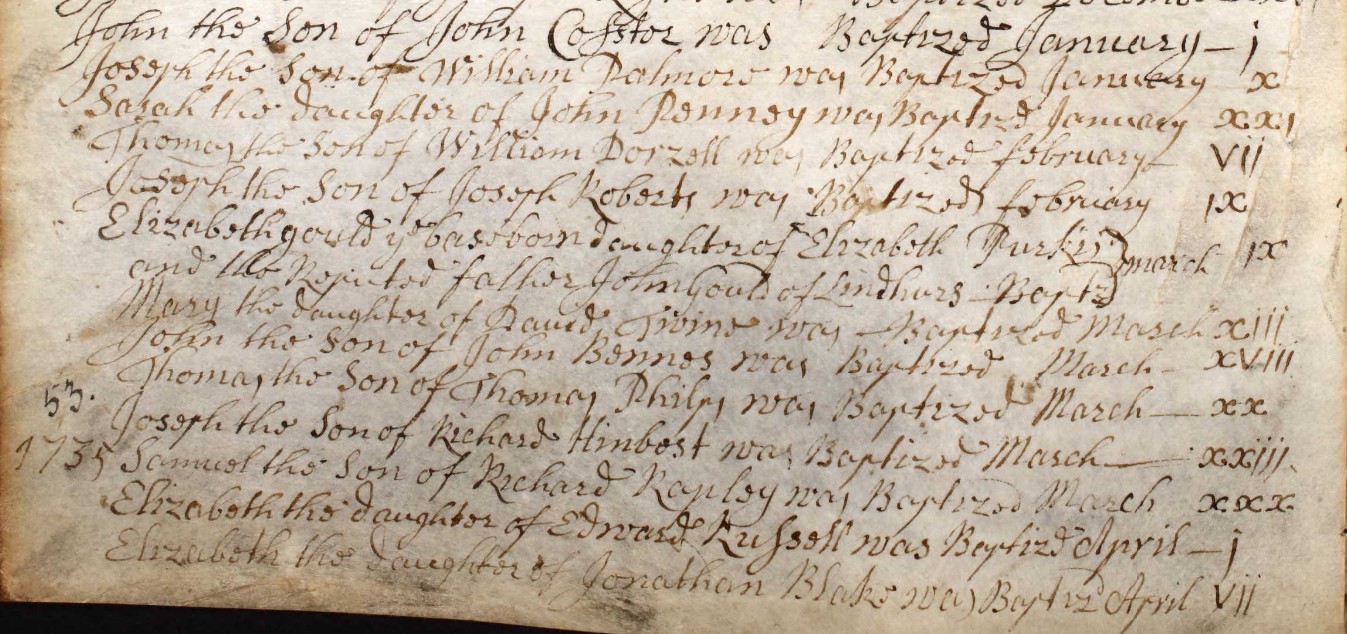 Baptized
John the Son of John Cosstor was Baptized January – j
Joseph the Son of William Palmore was Baptized January x
Sarah the daughter of John Penney was Baptizd January xxj
Thomas the Son of William Dorzell was Baptized february – VIj
Joseph the Son of Joseph Roberts was Baptized february jx
Elizabeth gould ye baseborn daughter of Elizabeth Purkis } march jx
and the Reputed father John Gould of Lindhurs – Baptzd
Mary the daughter of David was – Baptized March xiij
John the Son of John Bennes was Baptized March – xViij
Thomas the Son of Thomas Philps was Baptized March — xx
53.
Joseph the Son of Richard Himbest was Baptized March — xxiij
1735 Samuel the Son of Richard Rapley was Baptized March xxx
Elizabeth the daughter of Edward Russell was Baptizd April – j
Elizabeth the daughter of Jonathan Blake was Baptizd April Vij